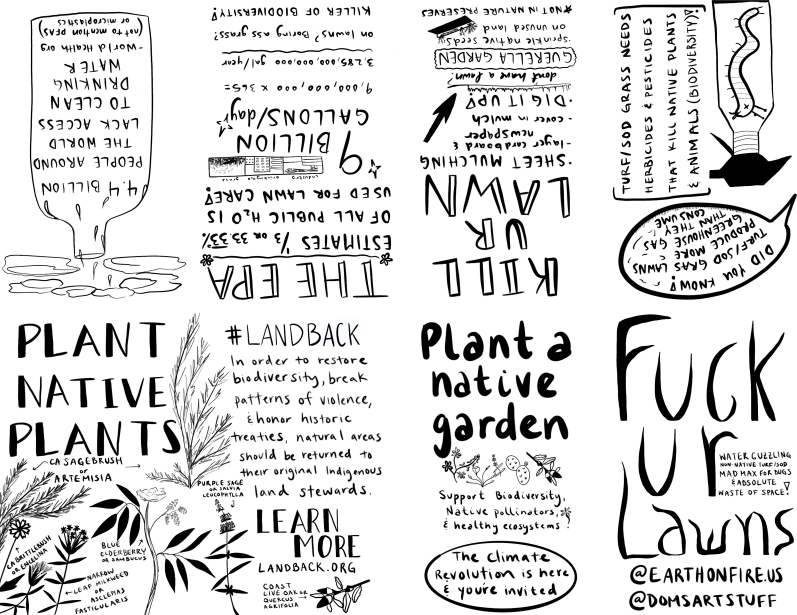 4.4 BILLION
PEOPLE AROUND
THE WORLD
LACK ACCESS
TO CLEAN
DRINKING
WATER
-World Health Org
(not to mention PFAS)
or microplastics
THE EPA
ESTIMATES 1/3 OR 33.33%
OF ALL PUBLIC H2O IS
USED FOR LAWN CARE!
9 BILLION
GALLONS/day!
9,000,000,000 x 365=
3,285,000,000,000 gal/year
on lawns? Boring ass grass?
KILLER OF BIODIVERSITY!
KILL
UR
LAWN
·SHEET MULCHING
-layer cardboard &
newspaper
-cover in mulch
·DIG IT UP!
don't have a lawn?
GUERELLA GARDEN
sprinkle native seeds
on unused land
*NOT IN NATURE PRESERVES
TURF/SOD GRASS NEEDS
HERBICIDES & PESTICIDES
THAT KILL NATIVE PLANTS
& ANIMALS (BIODIVERSITY)!
DID YOU KNOW?
TURF/SOD GRAS LAWNS
PRODUCE MORE
GREENHOUSE GAS
THAN THEY
CONSUME
PLANT
NATIVE
PLANTS
CA SAGEBRUSH
OR
ARTEMISIA
PURPLE SAGE
OR SALVIA
LEUCOPHYLLA
CA BRITTLEBUSH
OR ENCELINA
BLUE
ELDERBERRY
OR SAMBUCUS
NARROW
LEAF MILKWEED
OR
ASCLEMAS
FASTICULARIS
#LANDBACK
In order to restore
biodiversity, break
patterns of violence,
& honor historic
treaties, natural areas
should be returned to
their original Indigenous
land stewards.
LEARN
MORE
LANDBACK.ORG
COAST
LIVE OAK OR
QUERCUS
AGRIFOLIA
Plant a
native
garden
Support Biodiversity,
Native pollinators,
& healthy ecosystems!
The Climate
Revolution is here
& you're invited
Fuck
ur
Lawns
WATER GUZZLING
NON-NATIVE TURF/SOD
MAD MAX FOR BUGS
& ABSOLUTE
WASTE OF SPACE!
@EARTHONFIRE.US
@DOMSARTSTUFF